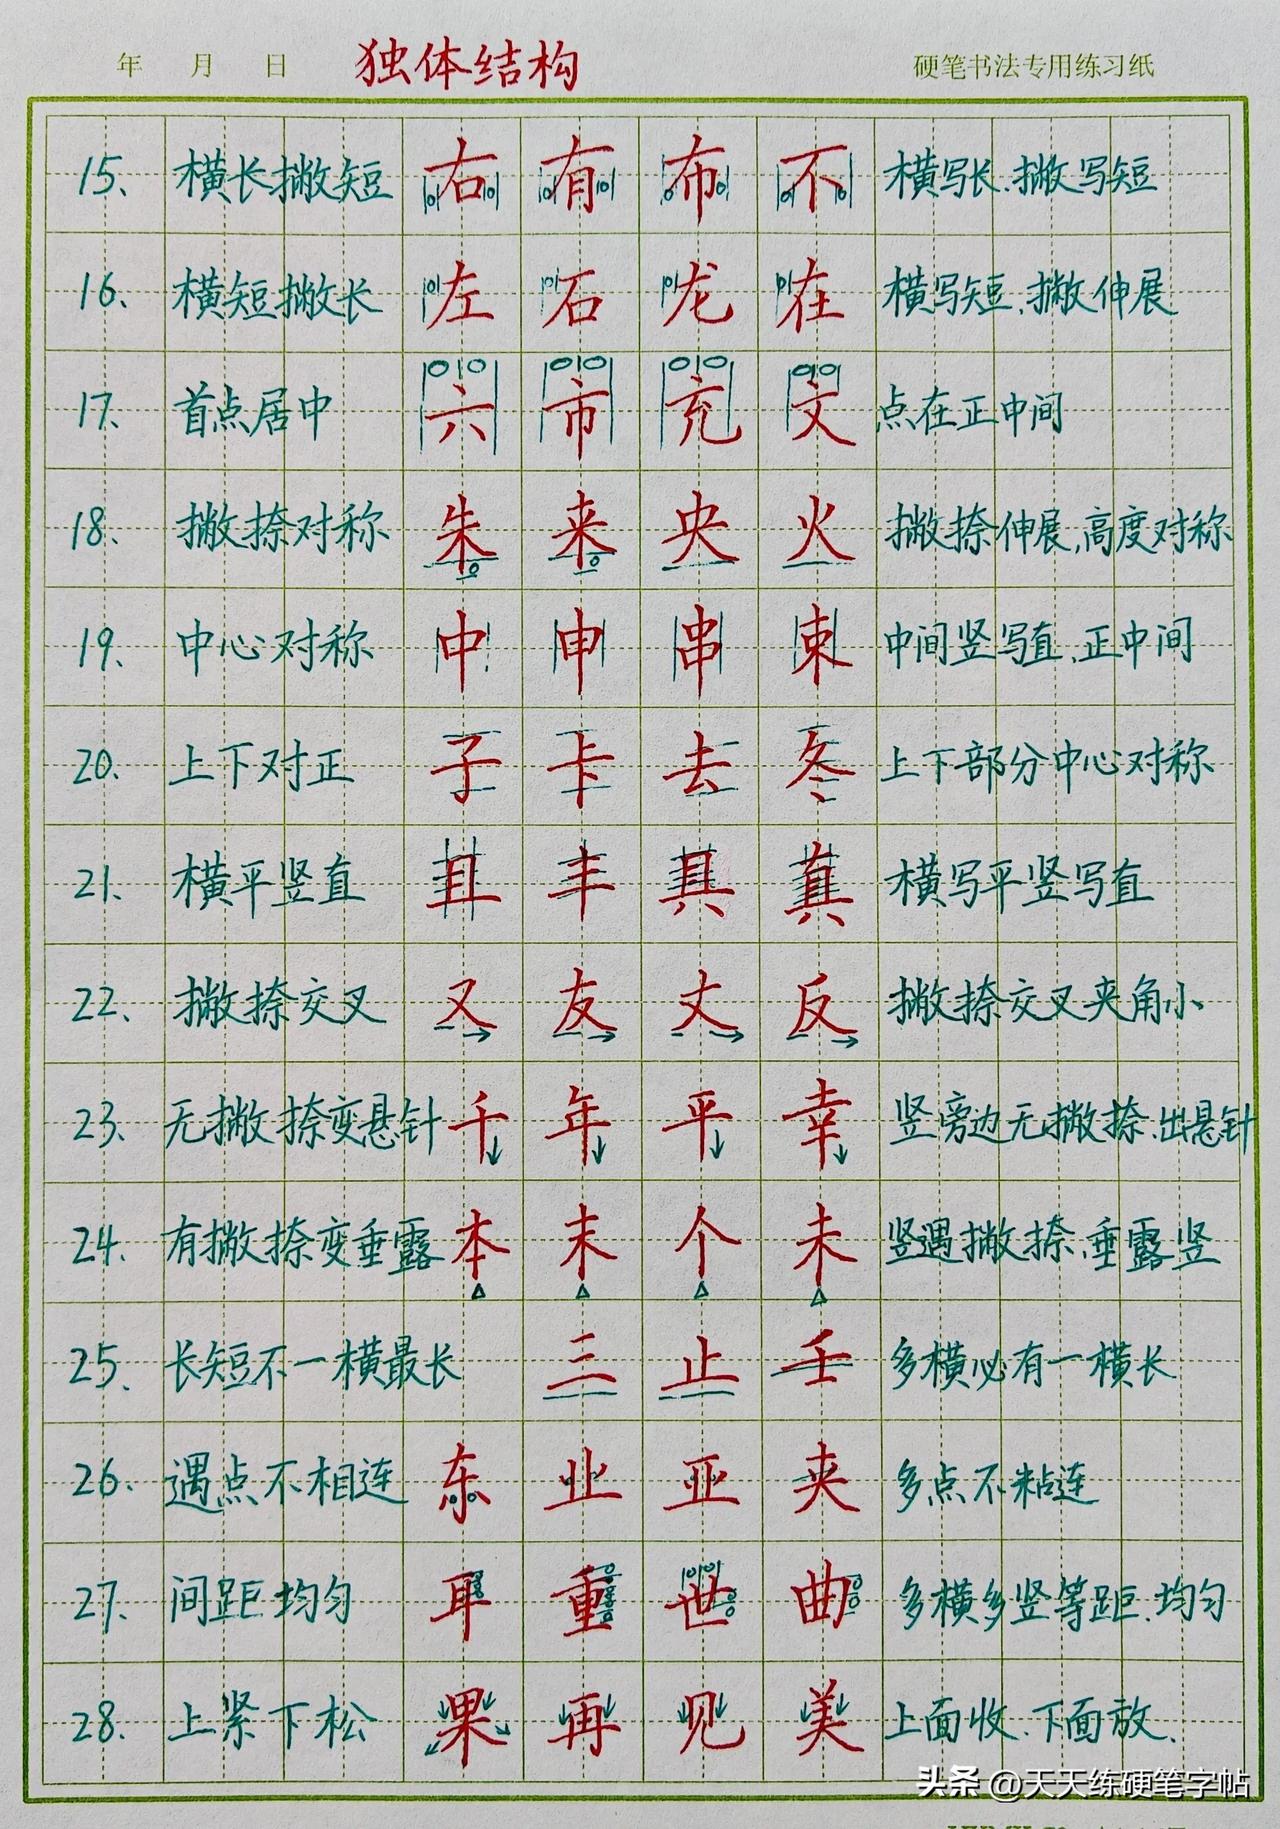 年 月 日 独体结构 硬笔书法专用练习纸
15、 横长撇短 右 有 布 不 横写长、撇写短
16、 横短撇长 左 石 龙 在 横写短、撇伸展
17、 首点居中 六 市 充 文 点在正中间
18、 撇捺对称 朱 来 央 火 撇捺伸展,高度对称
19、 中心对称 中 申 串 束 中间竖写直、正中间
20、 上下对正 子 卡 去 冬 上下部分中心对称
21、 横平竖直 且 丰 具 真 横写平竖写直
22、 撇捺交叉 又 友 丈 反 撇捺交叉夹角小
23、 无撇捺变悬针 千 年 平 幸 竖旁边无撇捺、出悬针
24、 有撇捺变垂露 本 末 个 未 竖遇撇捺、垂露竖
25、 长短不一横最长 三 止 壬 多横必有一横长
26、 遇点不相连 东 业 亚 夹 多点不粘连
27、 间距均匀 耳 重 世 曲 多横多竖等距、均匀
28、 上紧下松 果 再 见 美 上面收、下面放、
头条 @天天练硬笔字帖